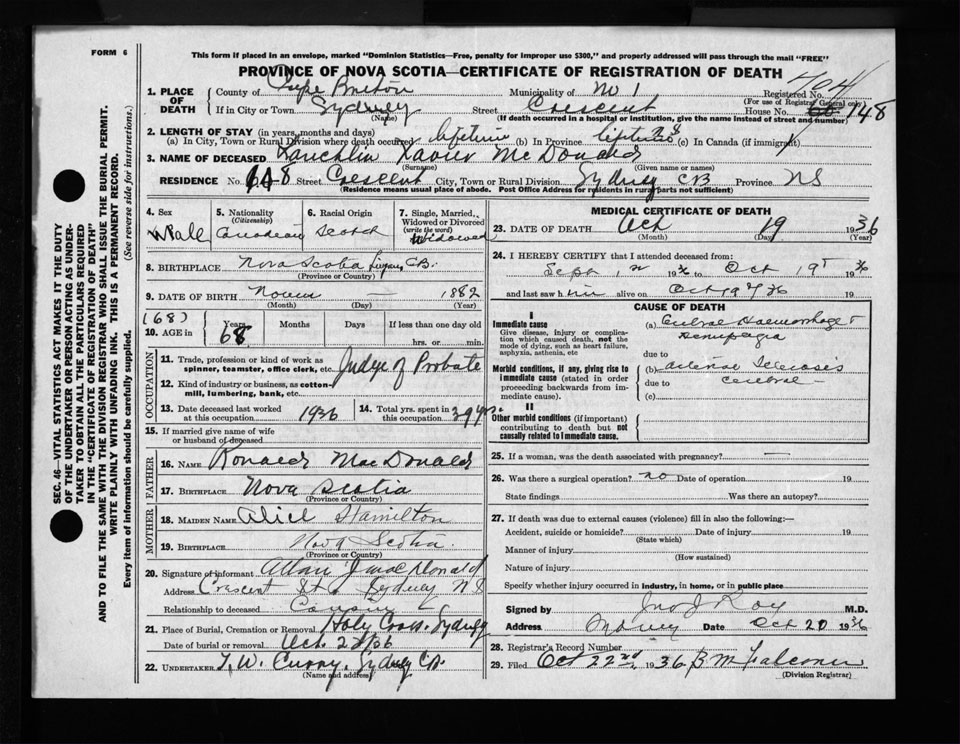 FORM 6
This form if placed in an envelope, marked "Dominion Statistics—Free, penalty for improper use $300," and properly addressed will pass through the mail "FREE"
PROVINCE OF NOVA SCOTIA—CERTIFICATE OF REGISTRATION OF DEATH
1. PLACE OF DEATH County of Cape Breton Municipality of No 1 Registered No.
(For use of Registrar General only)
If in City or Town Sydney Street Crescent House No. 148
(Name) (If death occurred in a hospital or institution, give the name instead of street and number)
2. LENGTH OF STAY (in years, months and days)
(a) In City, Town or Rural Division where death occurred lifetime (b) In Province lifetime (c) In Canada (if immigrant)
3. NAME OF DECEASED Lauchlin Xavier McDonald
(Surname) (Given name or names)
RESIDENCE No. 148 Street Crescent City, Town or Rural Division Sydney CB Province NS
(Residence means usual place of abode. Post Office Address for residents in rural parts not sufficient)
4. Sex Male
5. Nationality (Citizenship) Canadian
6. Racial Origin Scotch
7. Single, Married, Widowed or Divorced (write the word) Widowed
8. BIRTHPLACE Nova Scotia C.B.
(Province or Country)
9. DATE OF BIRTH — 1882
(Month) (Day) (Year)
(68)
10. AGE in Years 68 Months Days If less than one day old
hrs. or min.
OCCUPATION
11. Trade, profession or kind of work as spinner, teamster, office clerk, etc. Judge of Probate
12. Kind of industry or business, as cotton-mill, lumbering, bank, etc.
13. Date deceased last worked at this occupation 1936
14. Total yrs. spent in this occupation 39 yrs.
15. If married give name of wife or husband of deceased
FATHER
16. NAME Ronald MacDonald
17. BIRTHPLACE Nova Scotia
(Province or Country)
MOTHER
18. MAIDEN NAME Alice Hamilton
19. BIRTHPLACE Nova Scotia.
(Province or Country)
20. Signature of informant Allan J MacDonald
Address Crescent St Sydney NS
Relationship to deceased Cousin
21. Place of Burial, Cremation or Removal Holy Cross, Sydney
Date of burial or removal Oct.
22. UNDERTAKER T. W. Curry, Sydney CB.
(Name and address)
MEDICAL CERTIFICATE OF DEATH
23. DATE OF DEATH Oct 19 1936
(Month) (Day) (Year)
24. I HEREBY CERTIFY that I attended deceased from:
Sept 1936 to Oct 19 1936
and last saw him alive on Oct 19 36 19
CAUSE OF DEATH
I
Immediate cause
Give disease, injury or complication which caused death, not the mode of dying, such as heart failure, asphyxia, asthenia, etc
(a) Cerebral Haemorrhage &
Hemiplegia
due to
Morbid conditions, if any, giving rise to immediate cause (stated in order proceeding backwards from immediate cause).
(b) Arterial Sclerosis
due to cerebral —
(c)
II
Other morbid conditions (if important) contributing to death but not causally related to immediate cause.
25. If a woman, was the death associated with pregnancy? —
26. Was there a surgical operation? no Date of operation 19
State findings Was there an autopsy?
27. If death was due to external causes (violence) fill in also the following:—
Accident, suicide or homicide? Date of injury 19
(State which)
Manner of injury
(How sustained)
Nature of injury
Specify whether injury occurred in industry, in home, or in public place
Signed by Jno J Roy M.D.
Address Date Oct 20 1936
28. Registrar's Record Number
29. Filed Oct 22nd 1936 B M Falconer
(Division Registrar)
SEC. 46—VITAL STATISTICS ACT MAKES IT THE DUTY
OF THE UNDERTAKER OR PERSON ACTING AS UNDERTAKER TO OBTAIN ALL THE PARTICULARS REQUIRED
IN THE "CERTIFICATE OF REGISTRATION OF DEATH"
AND TO FILE THE SAME WITH THE DIVISION REGISTRAR WHO SHALL ISSUE THE BURIAL PERMIT.
WRITE PLAINLY WITH UNFADING INK. THIS IS A PERMANENT RECORD.
Every item of information should be carefully supplied. (See reverse side for instructions.)